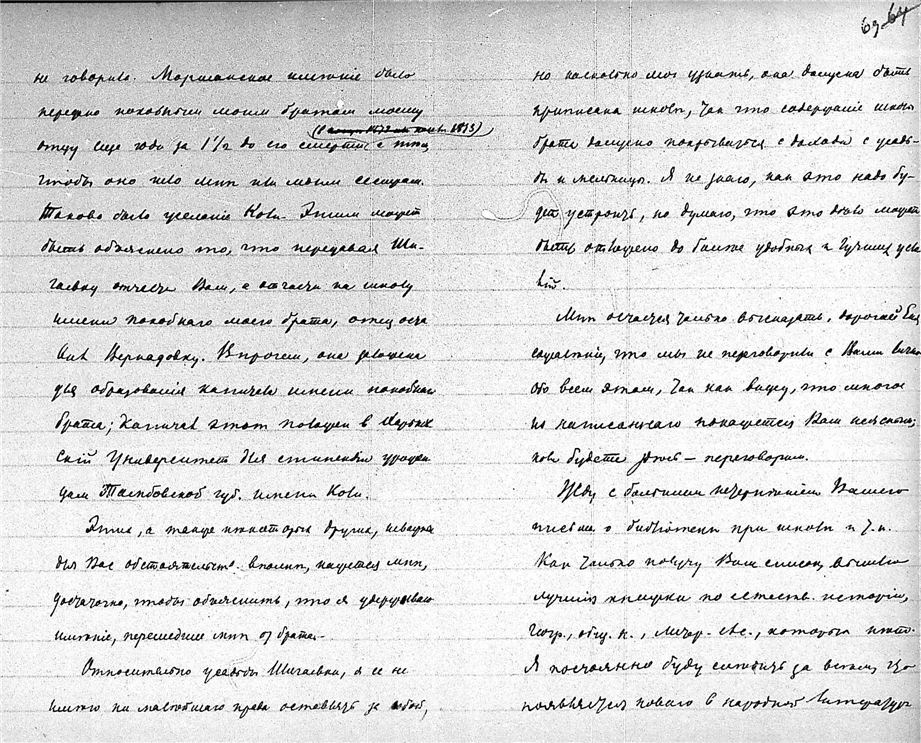 63 64
не говорило. Моршанское имѣніе было
передано покойным моим братом моему
отцу еще года за 1½ до его смерти с тем,
чтобы оно шло мнѣ или моим сестрам.
Таково было желаніе Коли. Этим может
быть объяснено то, что передавая Ши-
гаевку отчасти Вам, а отчасти на школу
имени покойнаго моего брата, отец
Вернадовку. Впрочем, она заложена
для образованія капитала имени покойнаго
брата; Капитал этот положен в Харьков
скій Университет для стипендіи урожен
цам Тамбовской губ. имени Коли.
Этих, а также некоторых других,
для Вас обстоятельств вполнѣ, кажется мнѣ,
достаточно, чтобы объяснить, что я удерживаю
имѣніе, перешедшее мнѣ от брата.
Относительно усадьбы Шигаевки, я ее не
имѣю ни малѣйшаго права оставлять за собой,
но насколько мог узнать, она должна быть
приписана школѣ, так что содержаніе школы
брата должно покрываться с дохода с усадь-
бы и мельницы. Я не знаю, как это надо бу-
дет устроить, но думаю, что это дѣло может
быть отложено до болѣе удобных и лучших усло
вій.
Мнѣ остается только высказать, дорогой
сожалѣніе, что мы не переговорили с Вами лично
обо всем этом, так как вижу, что многое
из написаннаго покажется Вам неясным;
коли будете – переговорим.
Жду с большим нетерпѣніем Вашего
письма о библіотекѣ при школѣ и т. п.
Как только получу Ваш список, вышлю
лучшія книжки по естеств. исторіи,
геогр., общ. н., литер. etc., которых нѣт.
Я постоянно буду слѣдить за всѣм, что
появляется новаго в народной литературѣ